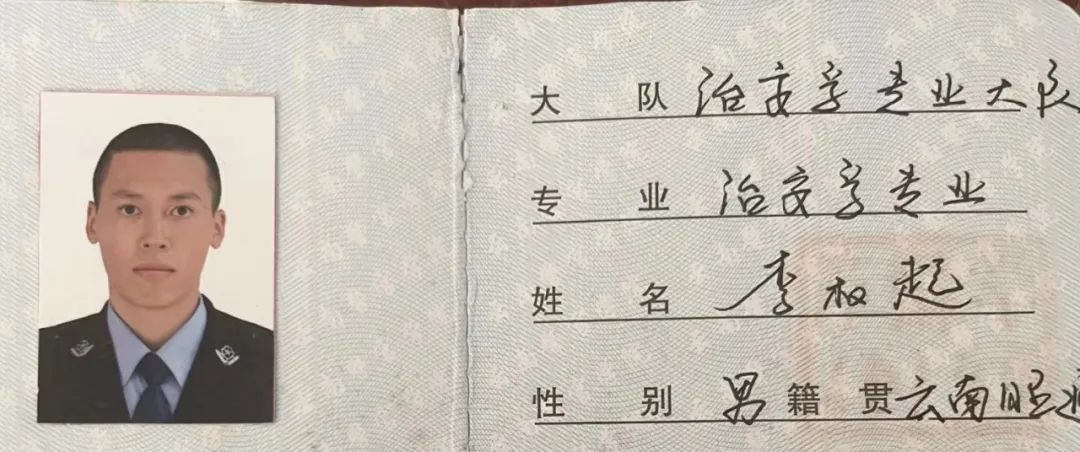 大队 治安学专业大队
专业 治安学专业
姓名 李权起
性别 男 籍贯 云南昭通